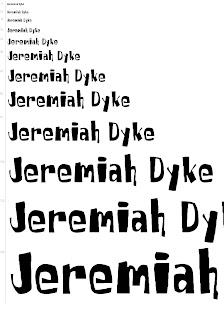 Jeremiah Dyke
Jeremiah Dyke
Jeremiah Dyke
Jeremiah Dyke
Jeremiah Dyke
Jeremiah Dyke
Jeremiah Dyke
Jeremiah Dyke
Jeremiah Dyke
Jeremiah Dyke
Jeremiah Dy
Jeremiah